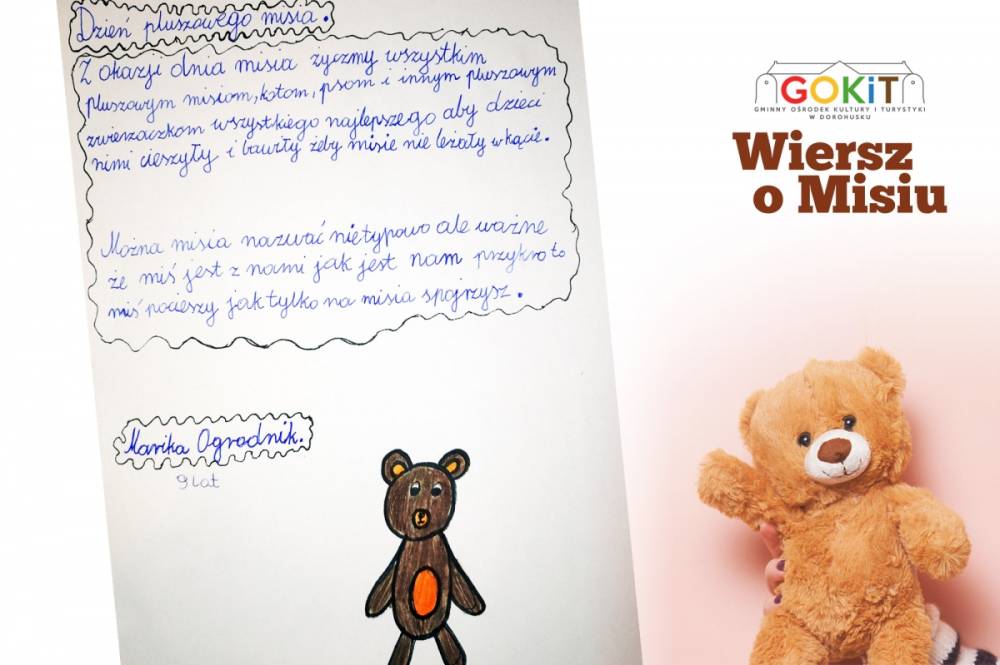 Dzień pluszowego misia.
Z okazji dnia misia życzmy wszystkim
pluszowym misiom, kotom, psom i innym pluszowym
zwierzaczkom wszystkiego najlepszego aby dzieci
nimi cieszyły i bawiły żeby misie nie leżały w kącie.
Można misia nazwać nietypowo ale ważne
że miś jest z nami jak jest nam przykro to
miś pocieszy jak tylko na misia spojrzysz.
Marika Ogrodnik.
9 Lat
GOKiT
GMINNY OŚRODEK KULTURY I TURYSTYKI
W DOROHUSKU
Wiersz
o Misiu